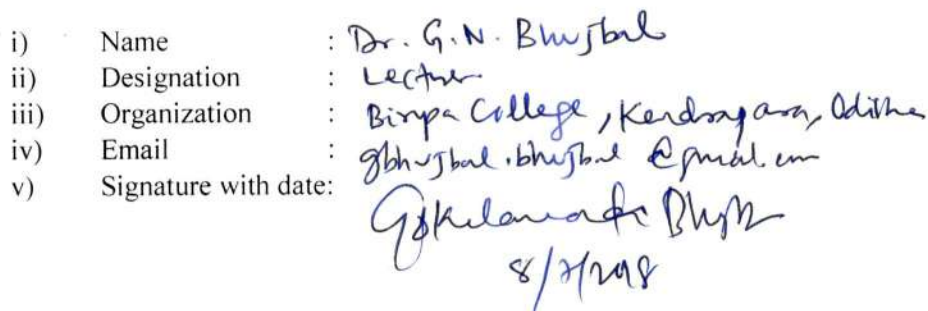 i) Name : Dr. G.N. Bhujbal
ii) Designation : Lecturer
iii) Organization : Birupa College, Kendrapara, Odisha
iv) Email : @gmail.com
v) Signature with date:
Bhujbal
8/7/2018